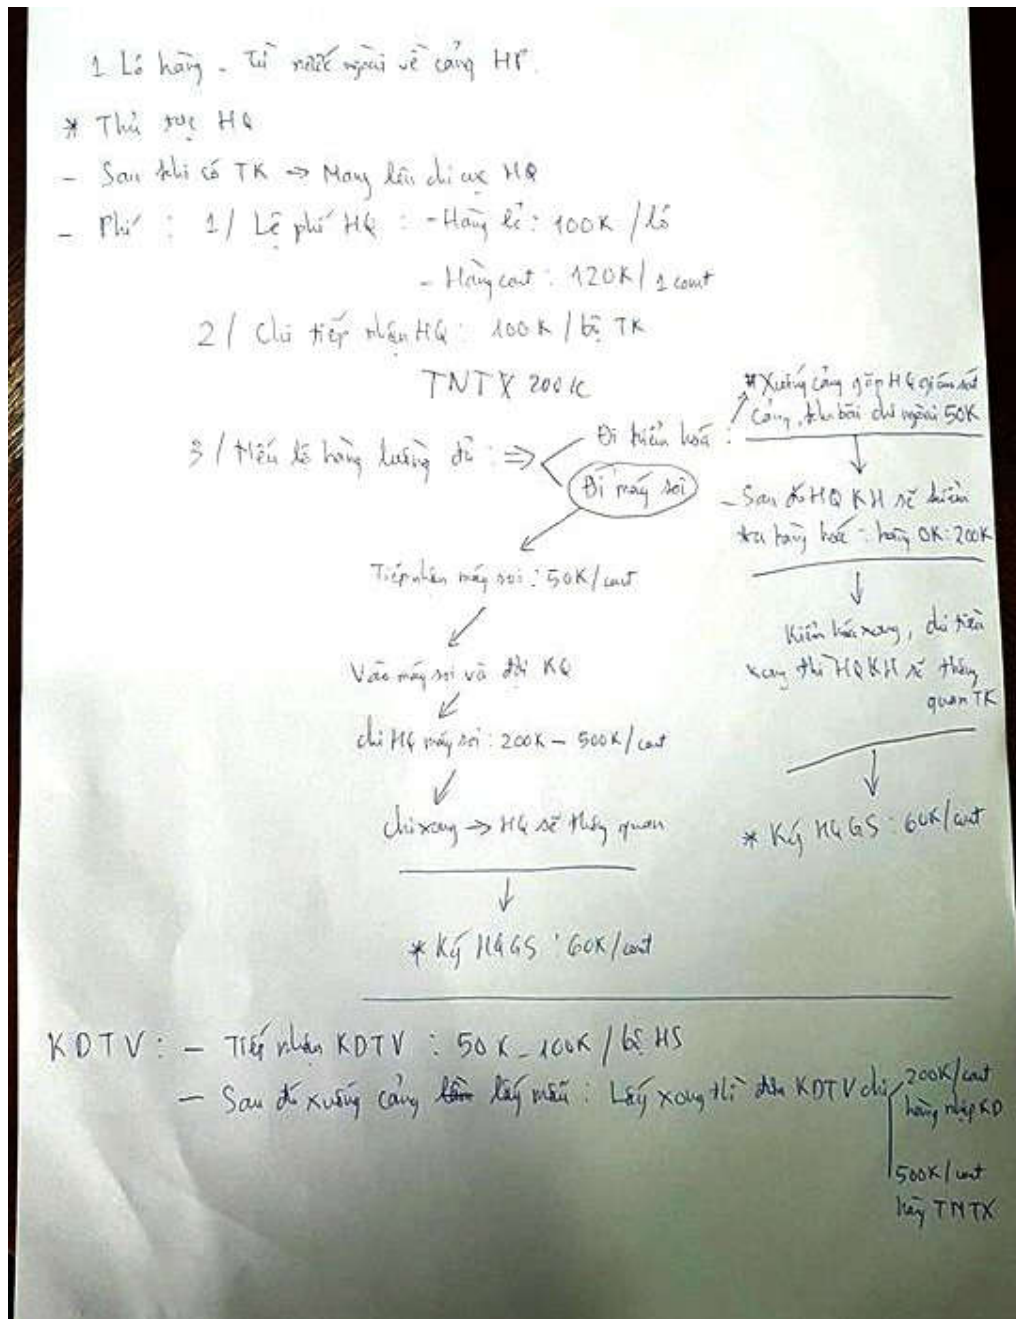 1 Lô hàng - Từ nước ngoài về cảng HP.
* Thủ tục HQ
- Sau khi có TK => Mang lên chi cục HQ
- Phí : 1/ Lệ phí HQ : - Hàng lẻ : 100K /lô
- Hàng cont : 120K/ 1 cont
2/ Chi tiếp nhận HQ : 100K / bộ TK
TNTX 200K
3/ Nếu lô hàng luồng đỏ : => Đi kiểm hoá :
Đi máy soi
Tiếp nhận máy soi : 50K/cont
Vào máy soi và đợi KQ
chi HQ máy soi : 200K - 500K/cont
chi xong -> HQ sẽ thông quan
* Ký HQGS : 60K/cont
* Xuống cảng gặp HQ giám sát
cảng, kho bãi chi ngoài 50K
- Sau đó HQ KH sẽ kiểm
tra hàng hoá : hàng OK : 200K
Kiểm hoá xong, chi tiền
xong thì HQKH sẽ thông
quan TK
* Ký HQGS : 60K/cont
KDTV : - Tiếp nhận KDTV : 50K - 100K / bộ HS
- Sau đó xuống cảng lấy mẫu : Lấy xong thì đưa KDTV chi
200K/cont
hàng nhập KD
500K/cont
hàng TNTX